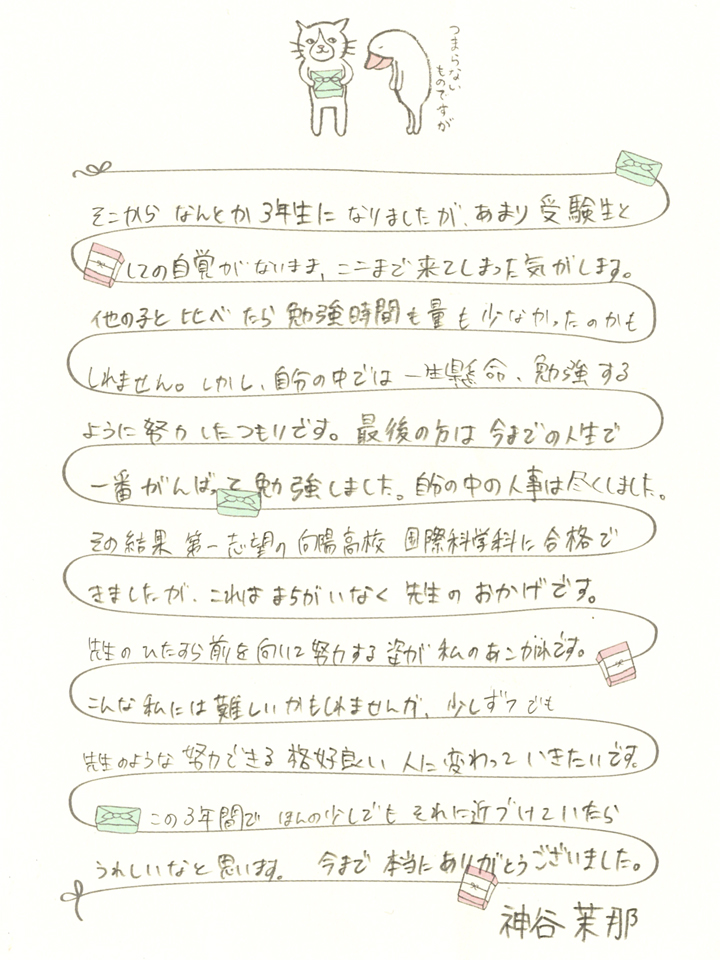 つまらない
ものですが
そこから なんとか 3年生に なりましたが、あまり 受験生と
しての自覚がないまま、ここまで来てしまった気がします。
他の子と 比べたら 勉強時間も量も少なかったのかも
しれません。しかし、自分の中では一生懸命、勉強する
ように努力したつもりです。最後の方は今までの人生で
一番がんばって勉強しました。自分の中の人事は尽くしました。
その結果 第一志望の向陽高校 国際科学科に合格で
きましたが、これはまちがいなく 先生のおかげです。
先生のひたすら前を向いて努力する姿が私のあこがれです。
こんな私には難しいかもしれませんが、少しずつでも
先生のような努力できる格好良い人に変わっていきたいです。
この3年間で ほんの少しでも それに近づけていたら
うれしいなと思います。 今まで本当にありがとうございました。
神谷 茉那